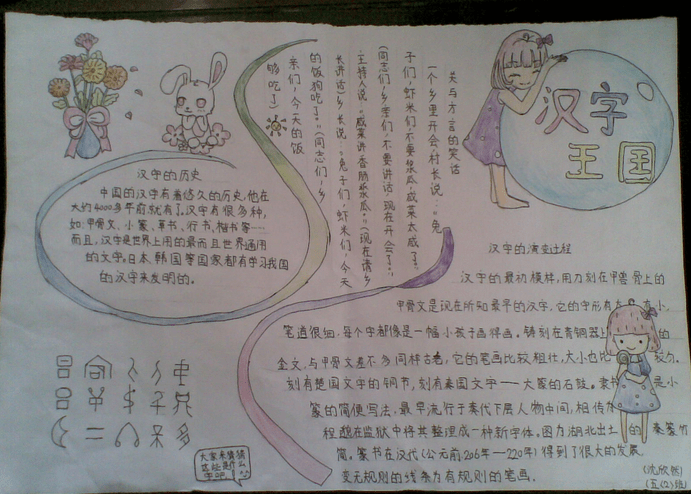 汉字
王国
关与方言的笑话
一个乡里开会,村长说:“兔
子们,虾米们,不要浆瓜,咸菜太咸了。”
(同志们,乡亲们,不要讲话,现在开会了。)
主持人说:“咸菜讲香肠浆瓜。”(现在请乡
长讲话)乡长说:“兔子们,虾米们,今天
的饭狗吃了。”(同志们,乡
亲们,今天的饭
够吃了)
汉字的历史
中国的汉字有着悠久的历史,他在
大约4000多年前就有了,汉字有很多种,
如:甲骨文、小篆、草书、行书、楷书等…
而且,汉字是世界上用的最而且世界通用
的文字,日本、韩国等国家都有学习我国
的汉字来发明的。
汉字的演变过程
汉字的最初模样,用刀刻在甲兽骨上的
甲骨文是现在所知最早的汉字,它的字形有 小,
笔道很细,每个字都像是一幅小孩子画得画。铸刻在青铜器上 的
金文,与甲骨文差不多同样古老,它的笔画比较粗壮,大小也比
刻有楚国文字的铜节,刻有秦国文字——大篆的石鼓。隶书 是小
篆的简便写法,最早流行于秦代下层人物中间,相传
程邈在监狱中将其整理成一种新字体。图为湖北出土 的 秦篆竹
简。篆书在汉代(公元前206年—220年)得到了很大的发展
变无规则的线条为有规则的笔画。
大家来猜猜
这些是什么
字吧
(沈欣然)
(五(2)班)